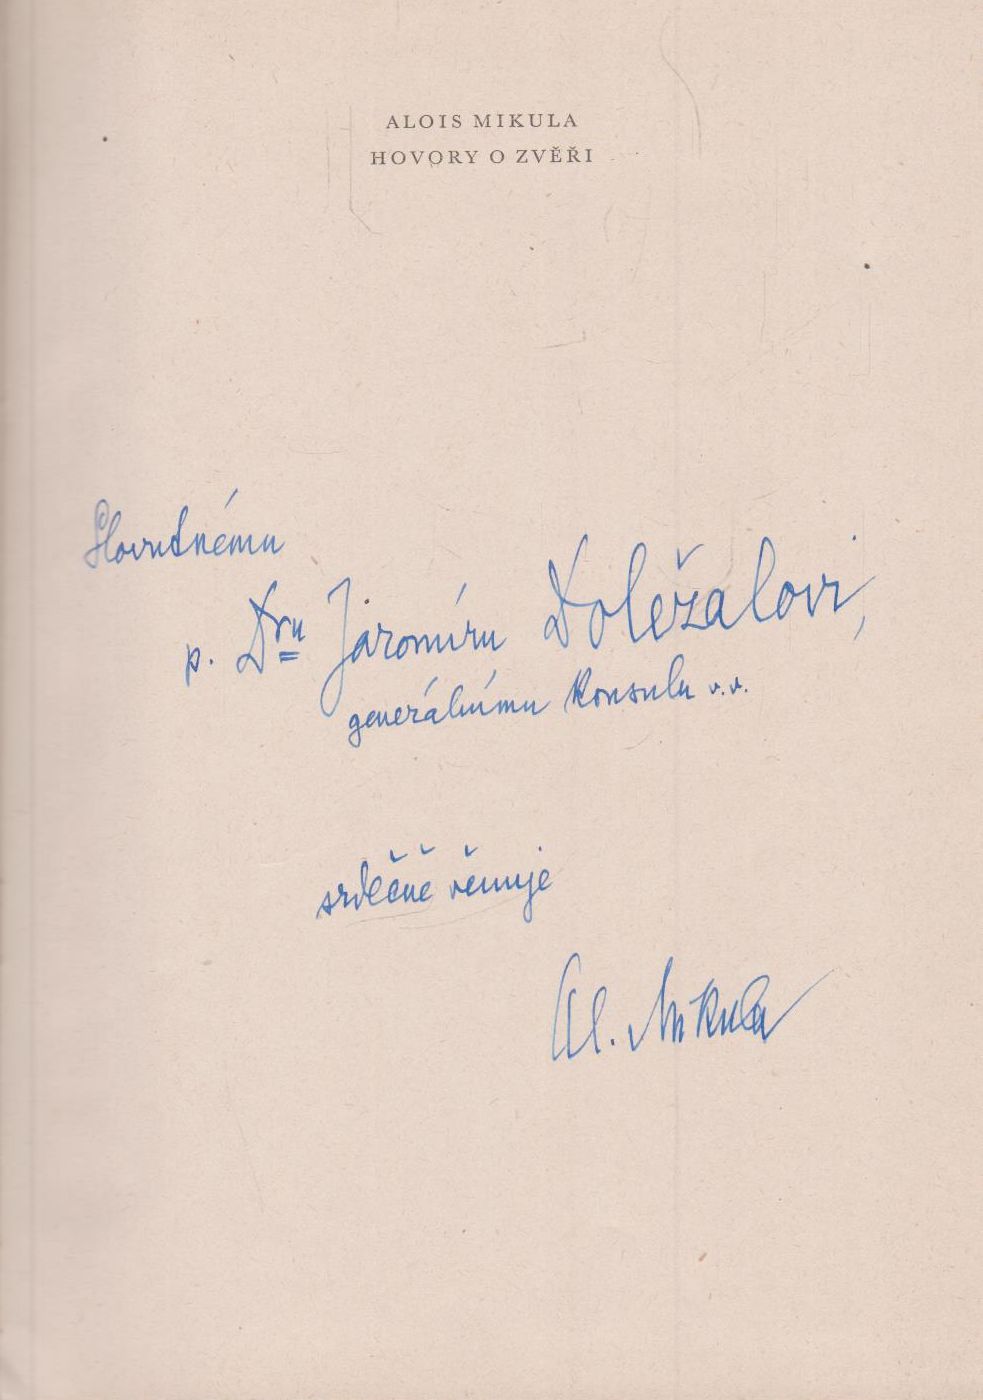 ALOIS MIKULA
HOVORY O ZVĚŘI
Slovutnému
p. Dru Jaromíru Doležalovi,
generálnímu konsulu v.v.
srdečně věnuje
Al. Mikula